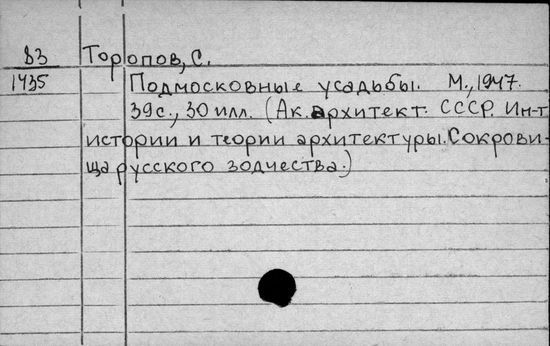 83 Торопов, С.
1435 Подмосковные усадьбы. М., 1947.
39с., 30 илл. (Ак. архитект. СССР. Ин-т
истории и теории архитектуры. Сокрови-
ща русского зодчества.)